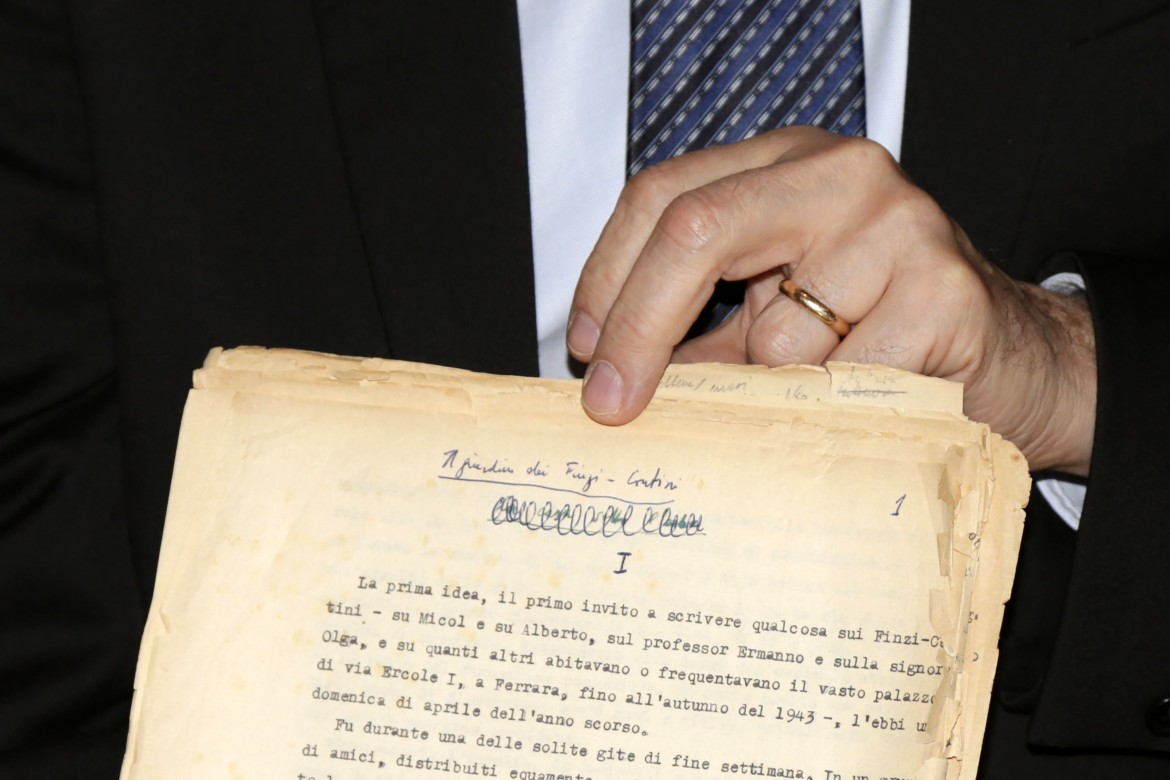 Il giardino dei Finzi-Contini
1
I
La prima idea, il primo invito a scrivere qualcosa sui Finzi-Co
tini - su Micol e su Alberto, sul professor Ermanno e sulla signor
Olga, e su quanti altri abitavano o frequentavano il vasto palazzo
di via Ercole I, a Ferrara, fino all'autunno del 1943 -, l'ebbi u
domenica di aprile dell'anno scorso.
Fu durante una delle solite gite di fine settimana. In un
di amici, distribuiti equamente